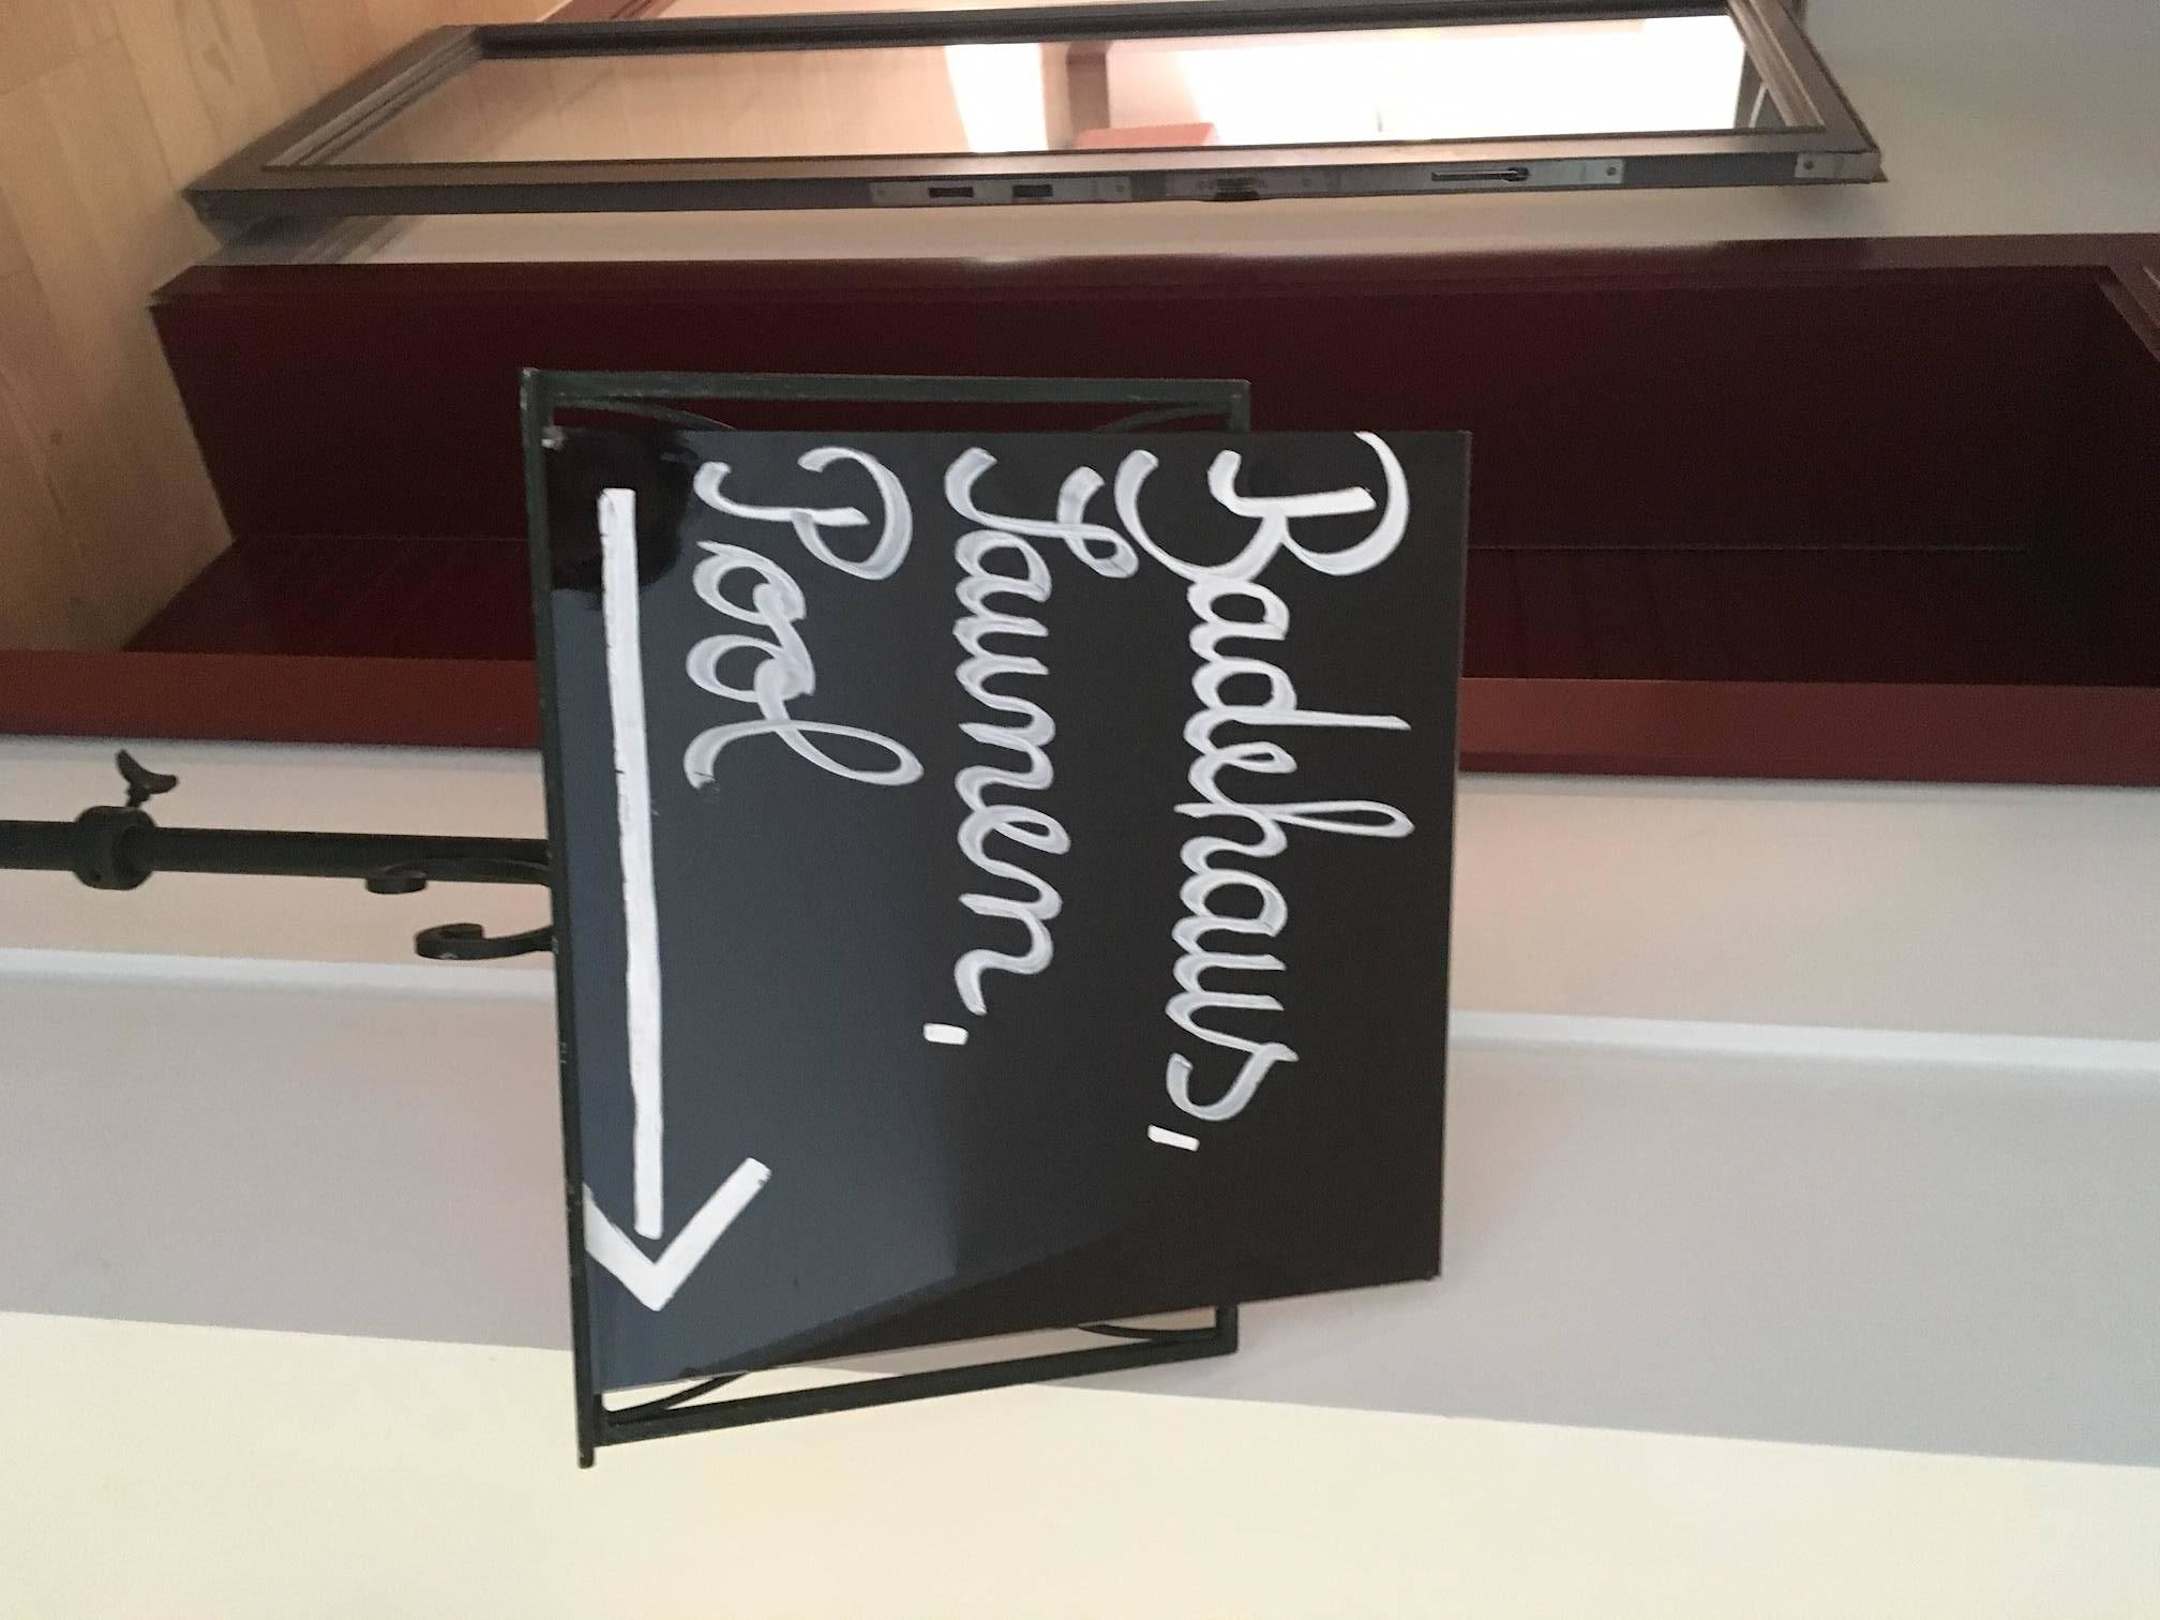 Badehaus,
Saunen,
Pool